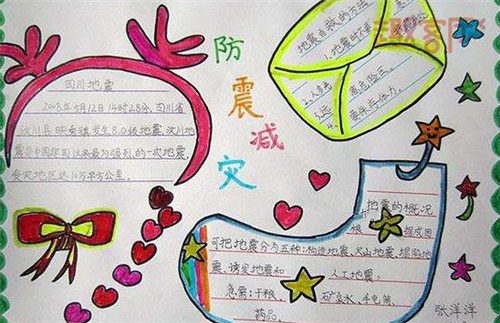 防震减灾
四川地震
2008年5月12日14时28分,四川省
汶川县映秀镇发生8.0级地震,汶川地
震是中国建国以来最为强烈的一次地震,
受灾地区达10万平方公里。
地震自救的方法
1.地震时
2.
3.远离危险区。
4.要保存体力。
地震的概况
根据成因
可把地震分为五种:构造地震、火山地震、塌陷地
震、诱发地震和人工地震。
急需:干粮、矿泉水、手电筒、
药品。
张洋洋